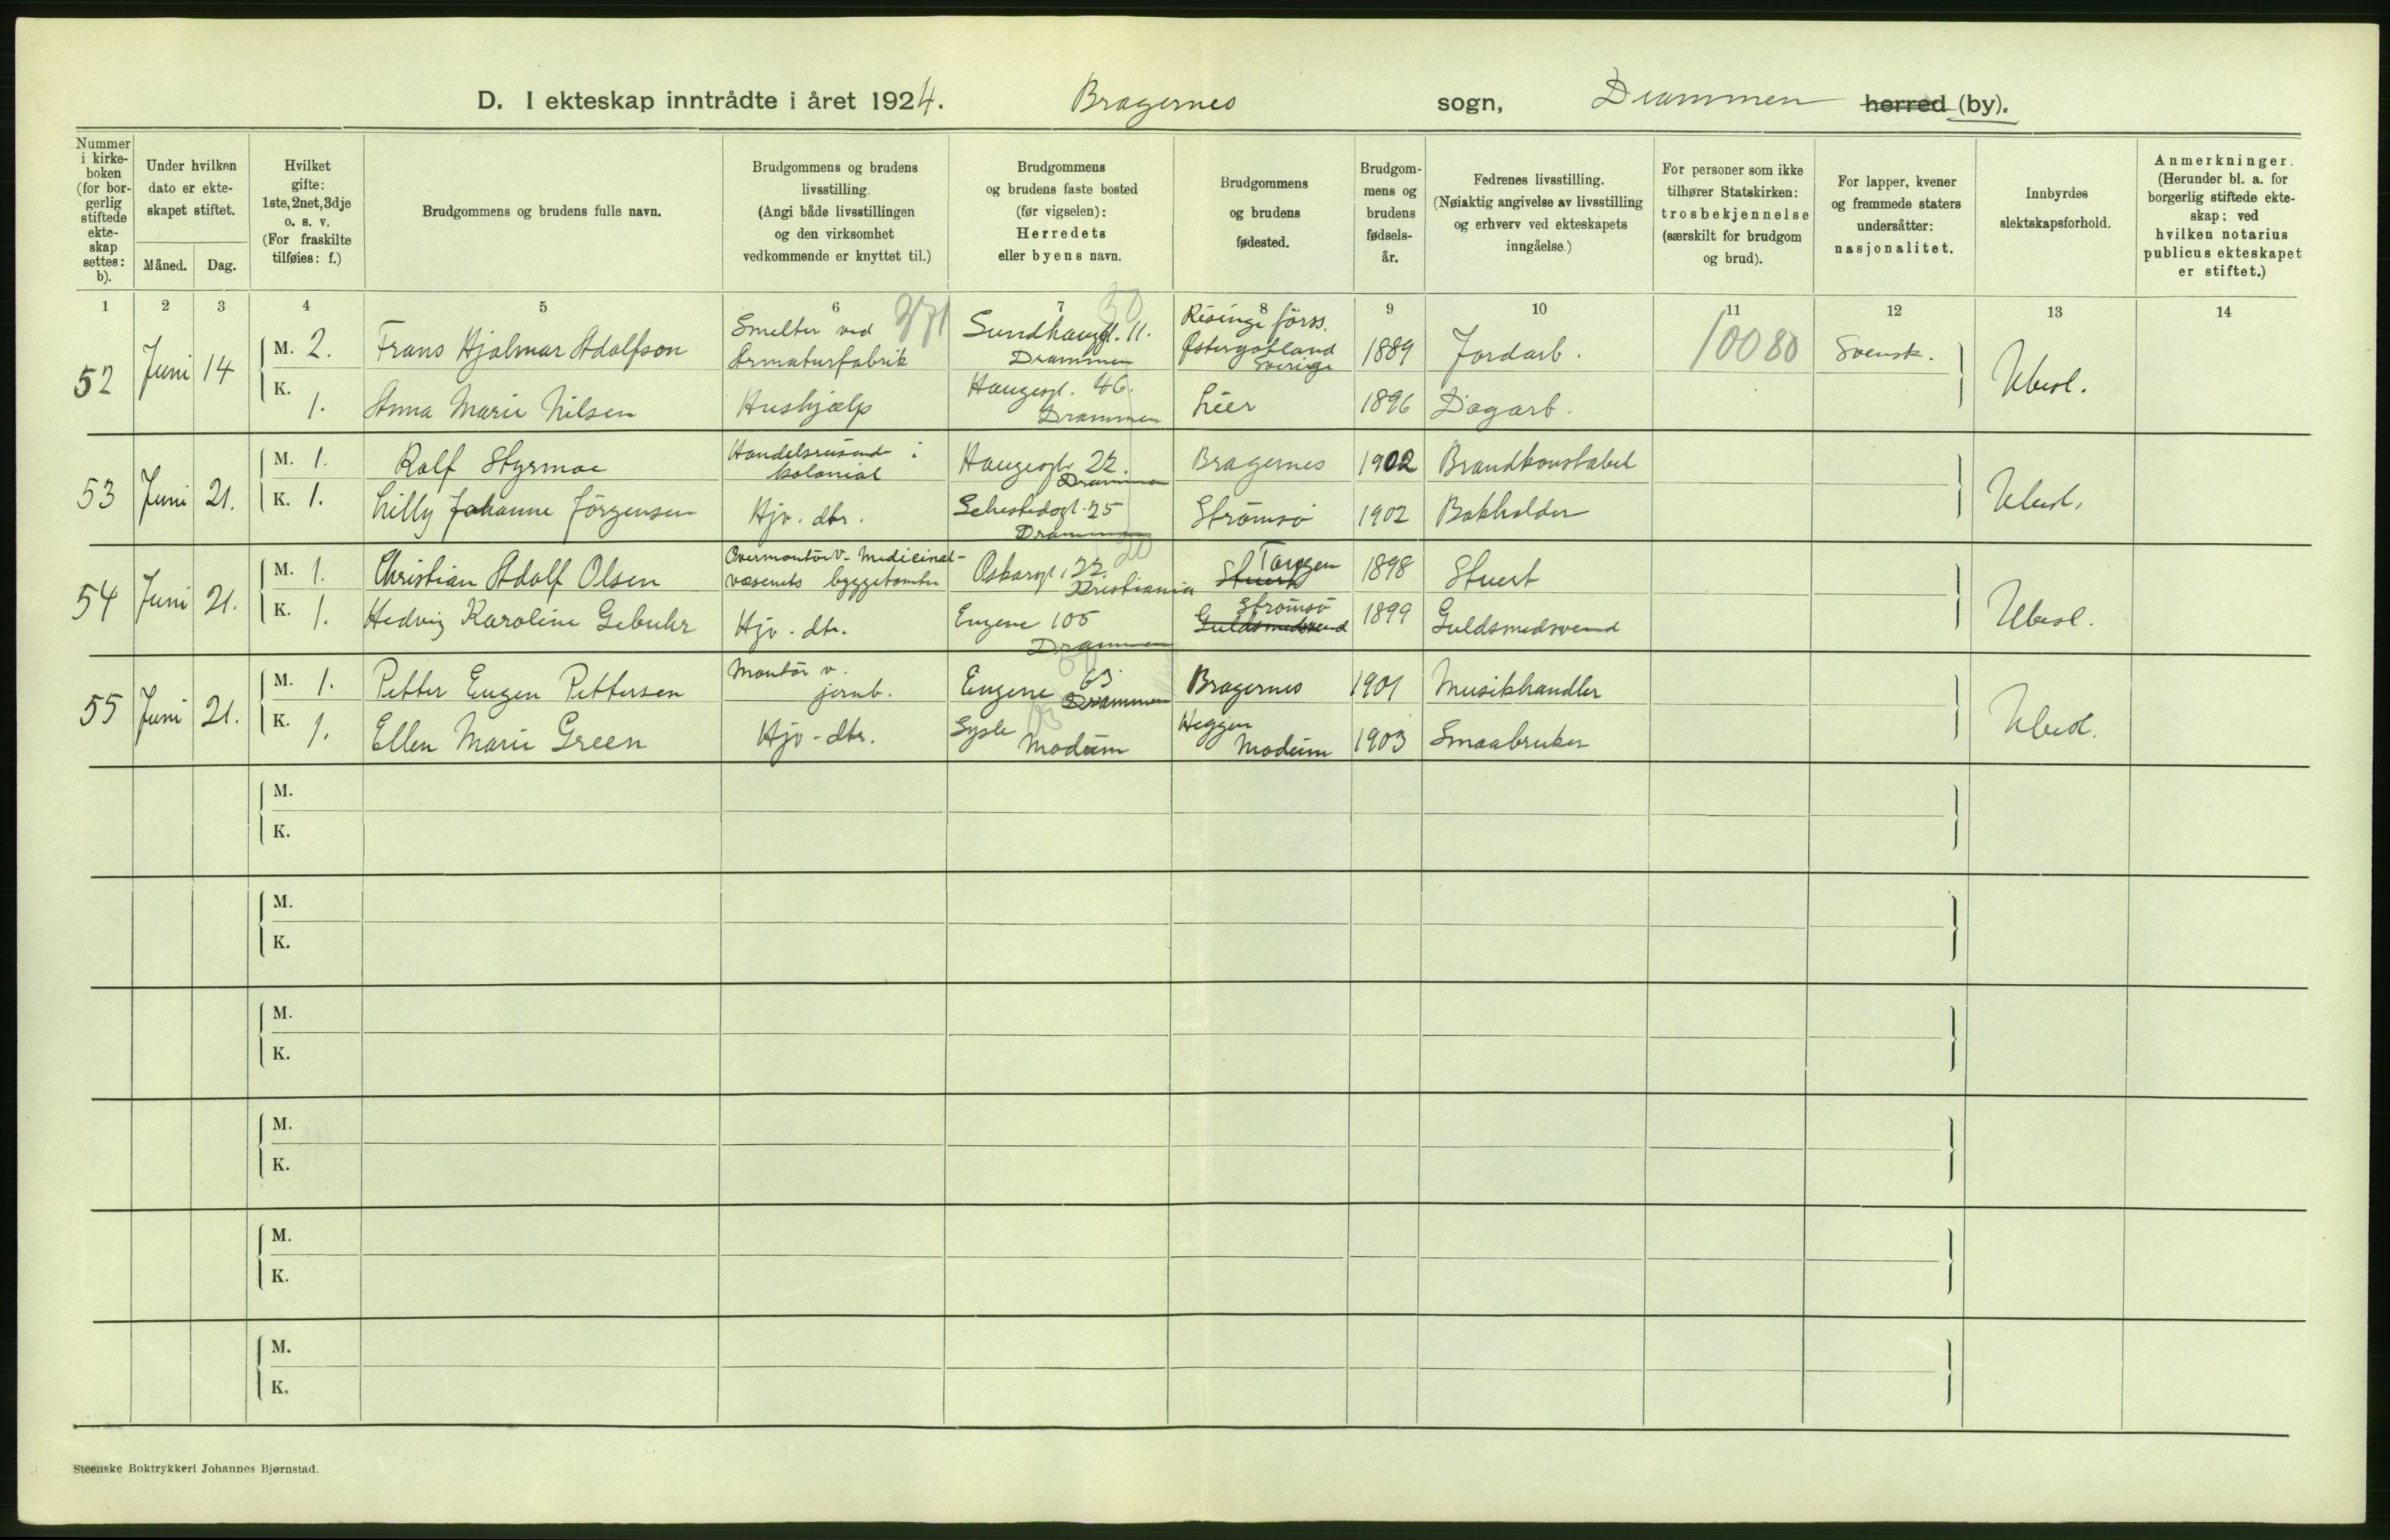 D. I ekteskap inntrådte i året 1924. Bragernes sogn, Drammen herred (by).
Nummer i kirke-boken (for bor-gerlig stiftede ekte-skap settes: b).
Under hvilken dato er ekte-skapet stiftet.
Måned. Dag.
Hvilket gifte: 1ste, 2net, 3dje o. s. v. (For fraskilte tilføies: f.)
Brudgommens og brudens fulle navn.
Brudgommens og brudens livsstilling. (Angi både livsstillingen og den virksomhet vedkommende er knyttet til.)
Brudgommens og brudens faste bosted (før vigselen): Herredets eller byens navn.
Brudgommens og brudens fødested.
Brudgom-mens og brudens fødsels-år.
Fedrenes livsstilling. (Nøiaktig angivelse av livsstilling og erhverv ved ekteskapets inngåelse.)
For personer som ikke tilhører Statskirken: trosbekjennelse (særskilt for brudgom og brud).
For lapper, kvener og fremmede staters undersåtter: nasjonalitet.
Innbyrdes slektskapsforhold.
Anmerkninger. (Herunder bl. a. for borgerlig stiftede ekte-skap: ved hvilken notarius publicus ekteskapet er stiftet.)
1 2 3 4 5 6 7 8 9 10 11 12 13 14
52 Juni 14 M. 2. Frans Hjalmar Adolfson Smelter ved Armaturfabrik Sundhaugl. 11. Drammen Risinge förs. Østergøtland Sverige 1889 Jordarb. 10080 Svensk. Ubesl.
K. 1. Anna Marie Nilsen Hushjælp Haugesgt. 46. Drammen Lier 1896 Dagarb.
53 Juni 21. M. 1. Rolf Styrmoe Handelsreisende i kolonial Haugesgt. 22. Drammen Bragernes 1902 Brandkonstabel Ubesl.
K. 1. Lilly Johanne Jörgensen Hjv. dtr. Schestedsgt. 25 Drammen Strømsø 1902 Bokholder
54 Juni 21. M. 1. Christian Adolf Olsen Overmontör v. Medicinal-væsenets byggetomter Oskarsgt. 22. Kristiania Stuert Tangen 1898 Stuert Ubesl.
K. 1. Hedvig Karoline Gebuhr Hjv. dtr. Engene 105 Drammen Guldsmedsvend Strømsö 1899 Guldsmedsvend
55 Juni 21. M. 1. Petter Eugen Pettersen Montör v. jernb. Engene 63 Drammen Bragernes 1901 Musikhandler Ubesl.
K. 1. Ellen Marie Green Hjv-dtr. Sysle Modum Heggen Modum 1903 Smaabruker
M.
K.
M.
K.
M.
K.
M.
K.
M.
K.
M.
K.
Steenske Boktrykkeri Johannes Bjørnstad.